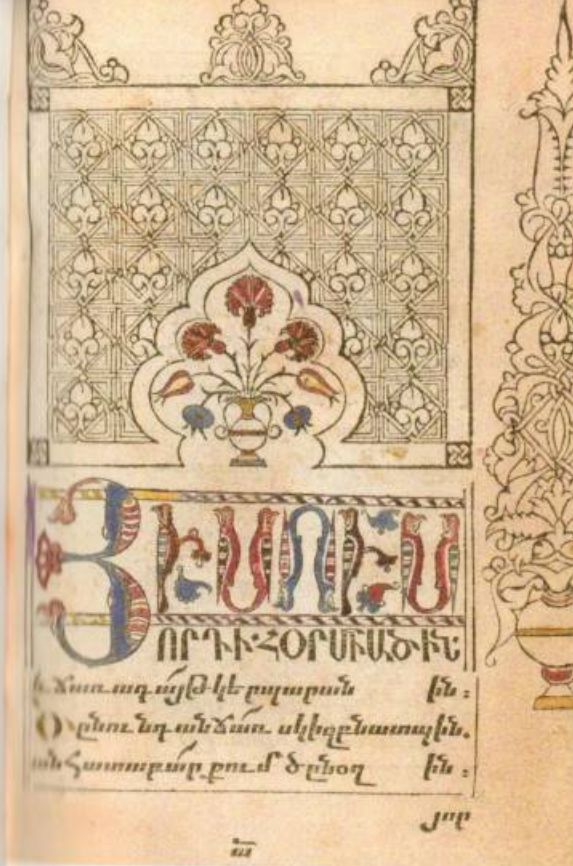 ՅԻՍՈՒՍ
ՈՐԴԻ՝ՀՕՐՄԻԱԾԻՆ:
և ճառագայթ կերպարան ին :
Ծընունդ անճառ սկիզբնատպին.
անհատաբար քում ծընօղ ին :
յոր
ա